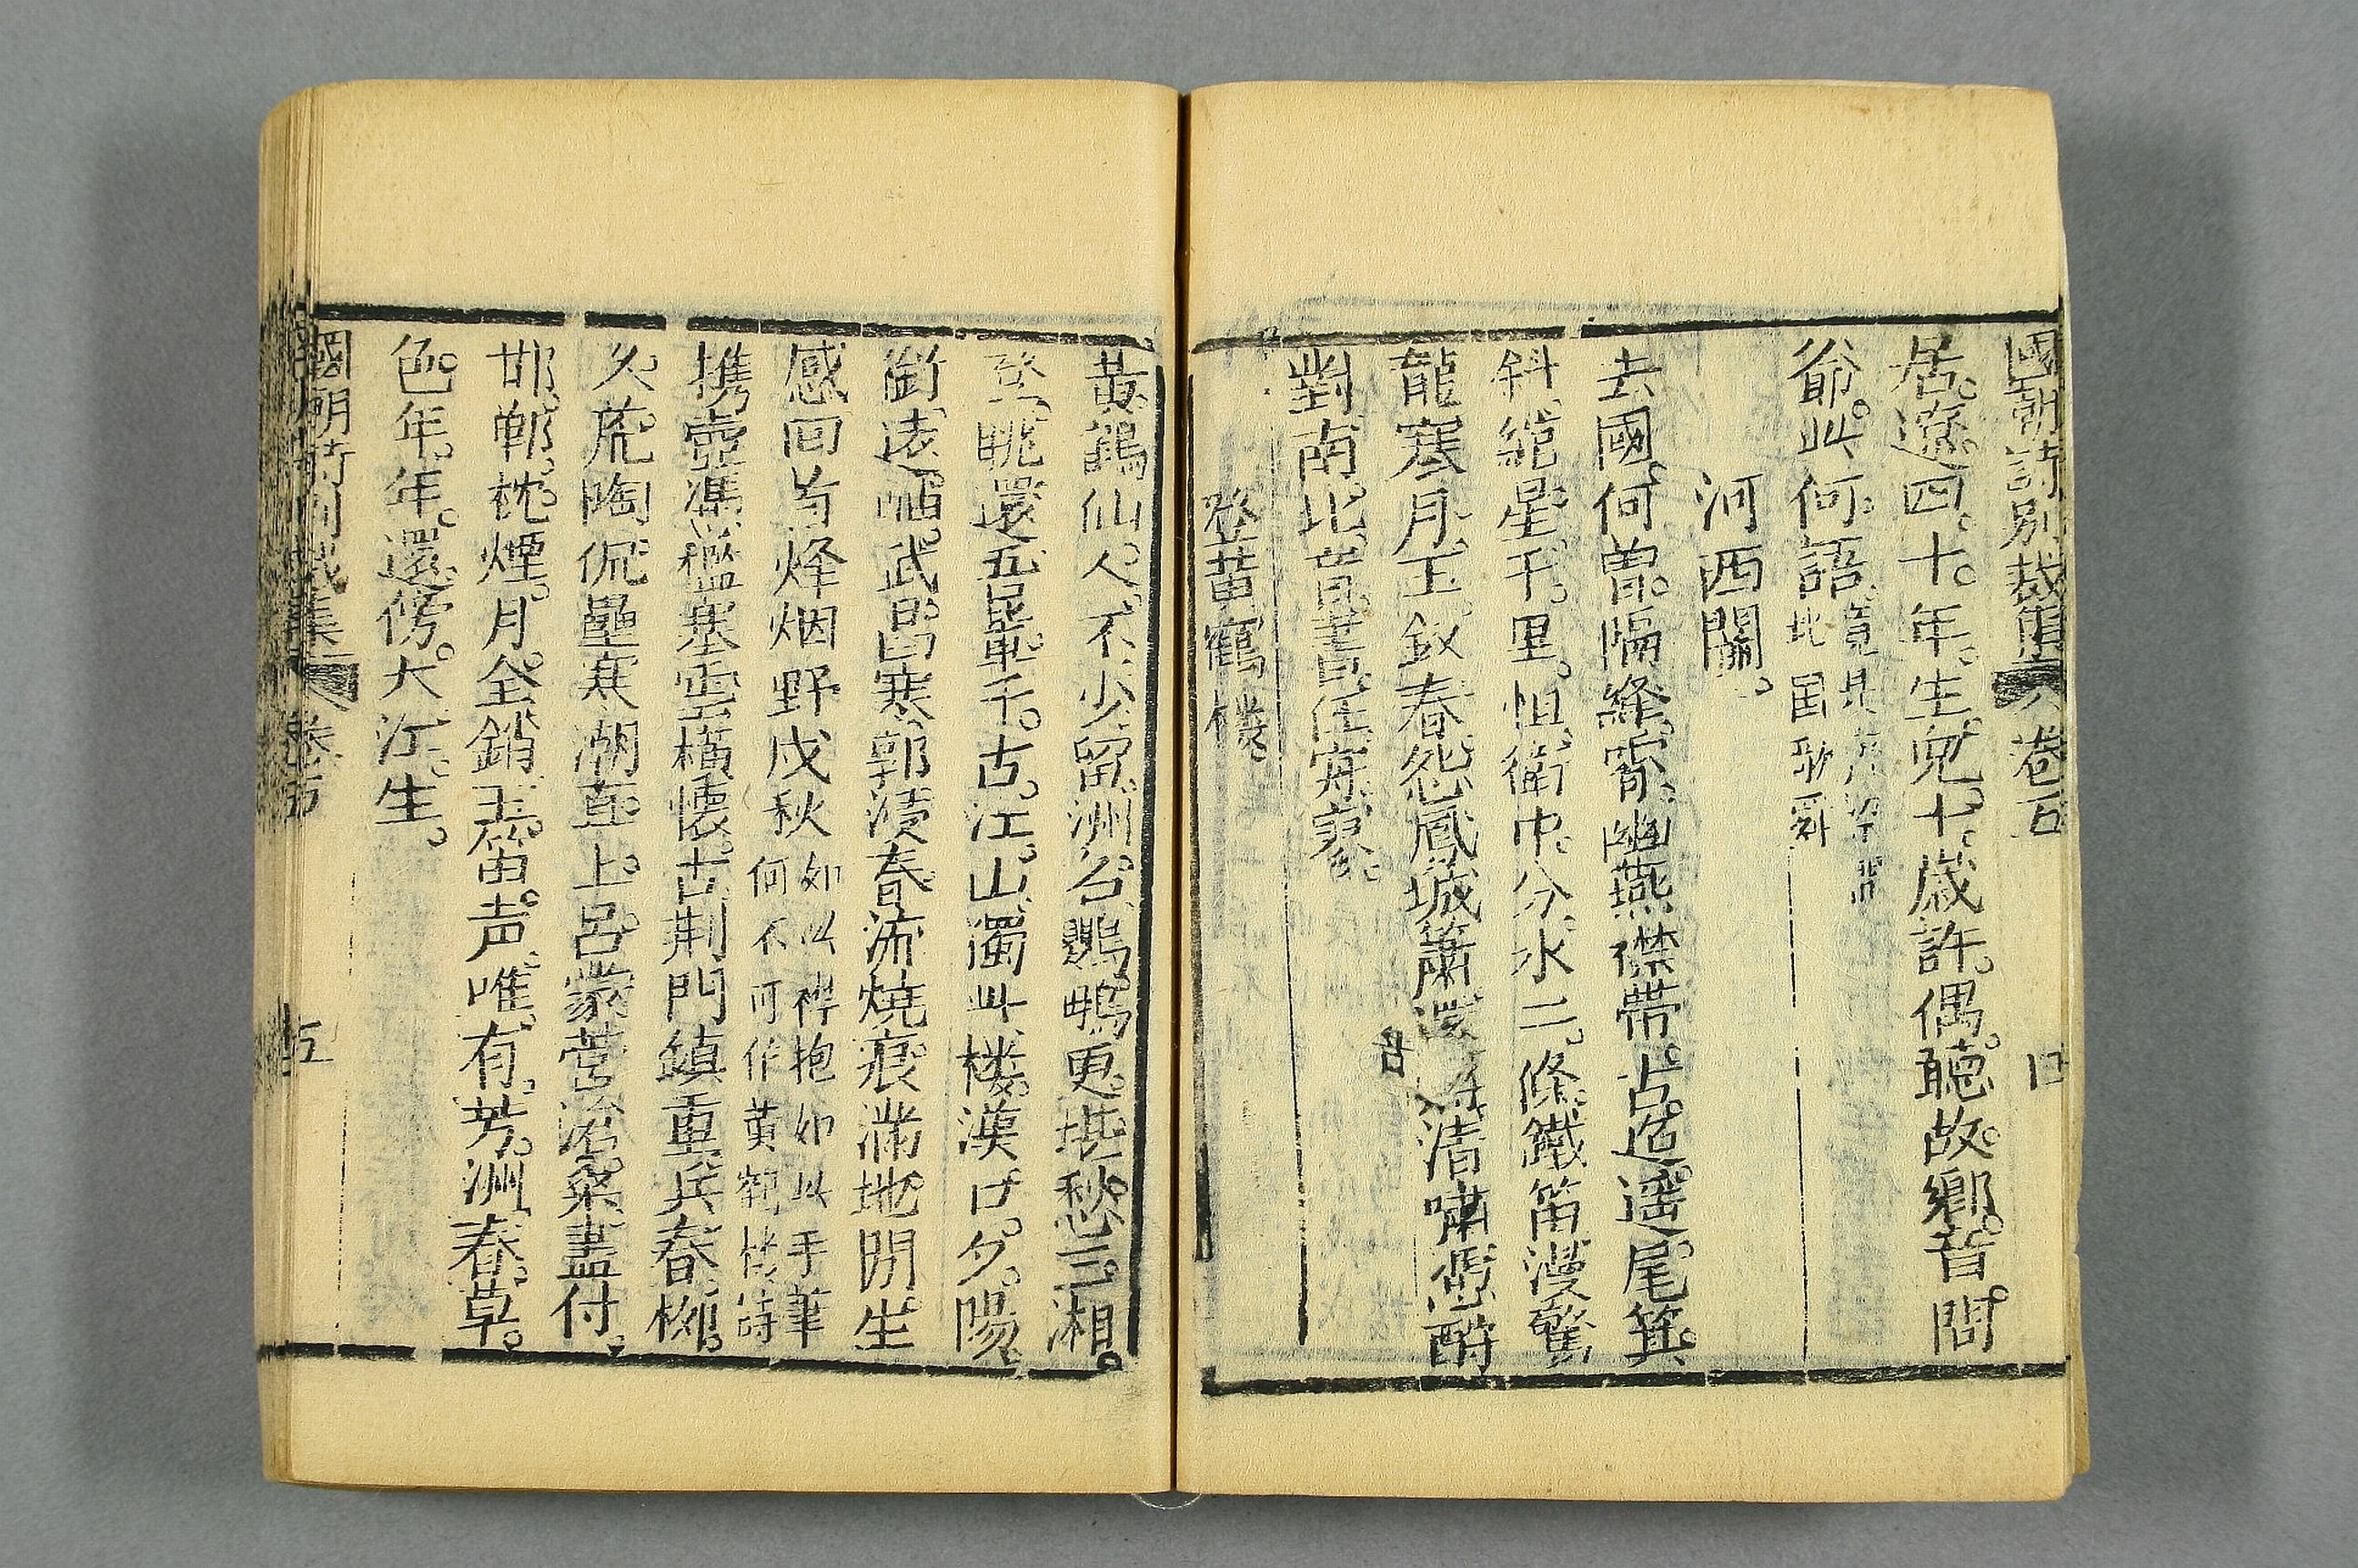 國朝詩別裁集 卷五
居遼四十年生兒十歲許偶聽故鄉音問
爺此何語
河西關
去國何曾隔絳霄幽燕襟帶占迢遥尾箕
斜綰星千里怛衛中分水二條鐵笛漫驚
龍塞月玉釵春怨鳳城簫 清嘯憑酹
對南北
登黄鶴樓
黃鶴仙人不少留洲名鸚鵡更堪愁三湘
登眺還五月千古江山獨此樓漢口夕陽
銜遠岫武昌寒郭浸春流燒痕滿地閒生
感回首烽烟野戍秋如以襟抱如以手筆
何不可作黃鶴樓詩
携壺馮檻塞雲橫懷古荆門鎮重兵春柳
久荒陶侃壘寒潮直上呂蒙營 盡付
邯鄲枕煙月全銷玉笛声唯有芳洲春草
色年年還傍大江生
國朝詩別裁集 卷五
五